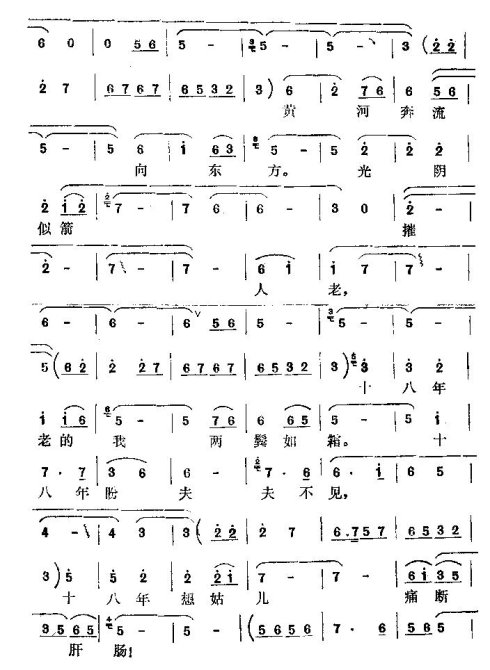 6 0 | 0 5 6 | 5 - | 5 - | 5 - | 3 ( 2 2 |
2 7 | 6 7 6 7 | 6 5 3 2 | 3 ) 6 | 2 7 6 | 6 5 6 |
黄 河 奔 流
5 - | 5 6 | i 6 3 | 5 - | 5 2 | 2 2 |
向 东 方。 光 阴
2 i 2 | 7 - | 7 6 | 6 - | 3 0 | 2 - |
似 箭 摧
2 - | 7 - | 7 - | 6 i | i 7 | 7 - |
人 老,
6 - | 6 - | 6 5 6 | 5 - | 5 - | 5 - |
5 ( 6 2 | 2 2 7 | 6 7 6 7 | 6 5 3 2 | 3 ) 3 | 3 2 |
十 八 年
i i 6 | 5 - | 5 7 6 | 6 6 5 | 5 - | 5 i |
老 的 我 两 鬓 如 霜。 十
7 · 7 | 3 6 | 6 - | 7 · 6 | 6 · i | 6 5 |
八 年 盼 夫 夫 不 见,
4 - | 4 3 | 3 ( 2 2 | 2 7 | 6 · 7 5 7 | 6 5 3 2 |
3 ) 5 | 5 2 | 2 2 i | 7 - | 7 - | 6 i 3 5 |
十 八 年 想 姑 儿 痛 断
3 5 6 5 | 5 - | 5 - | ( 5 6 5 6 | 7 · 6 | 5 6 5 6 |
肝 肠!